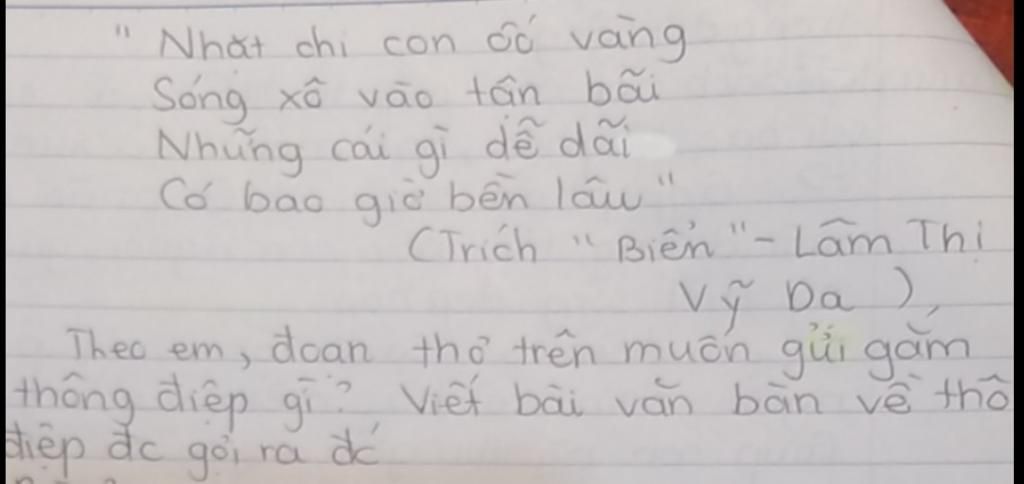 "Nhặt chi con ốc vàng
Sóng xô vào tận bãi
Những cái gì dễ dãi
Có bao giờ bền lâu"
(Trích "Biển" - Lâm Thị
Vỹ Dạ)
Theo em, đoạn thơ trên muốn gửi gắm
thông điệp gì? Viết bài văn bàn về thô
điệp đc gợi ra đó